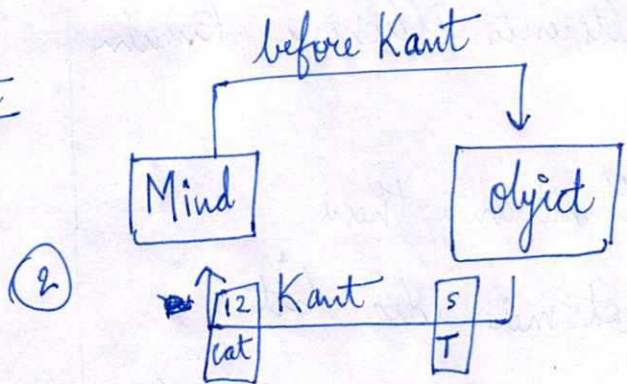 before Kant
Mind
object
2
12 Kant S
cat T